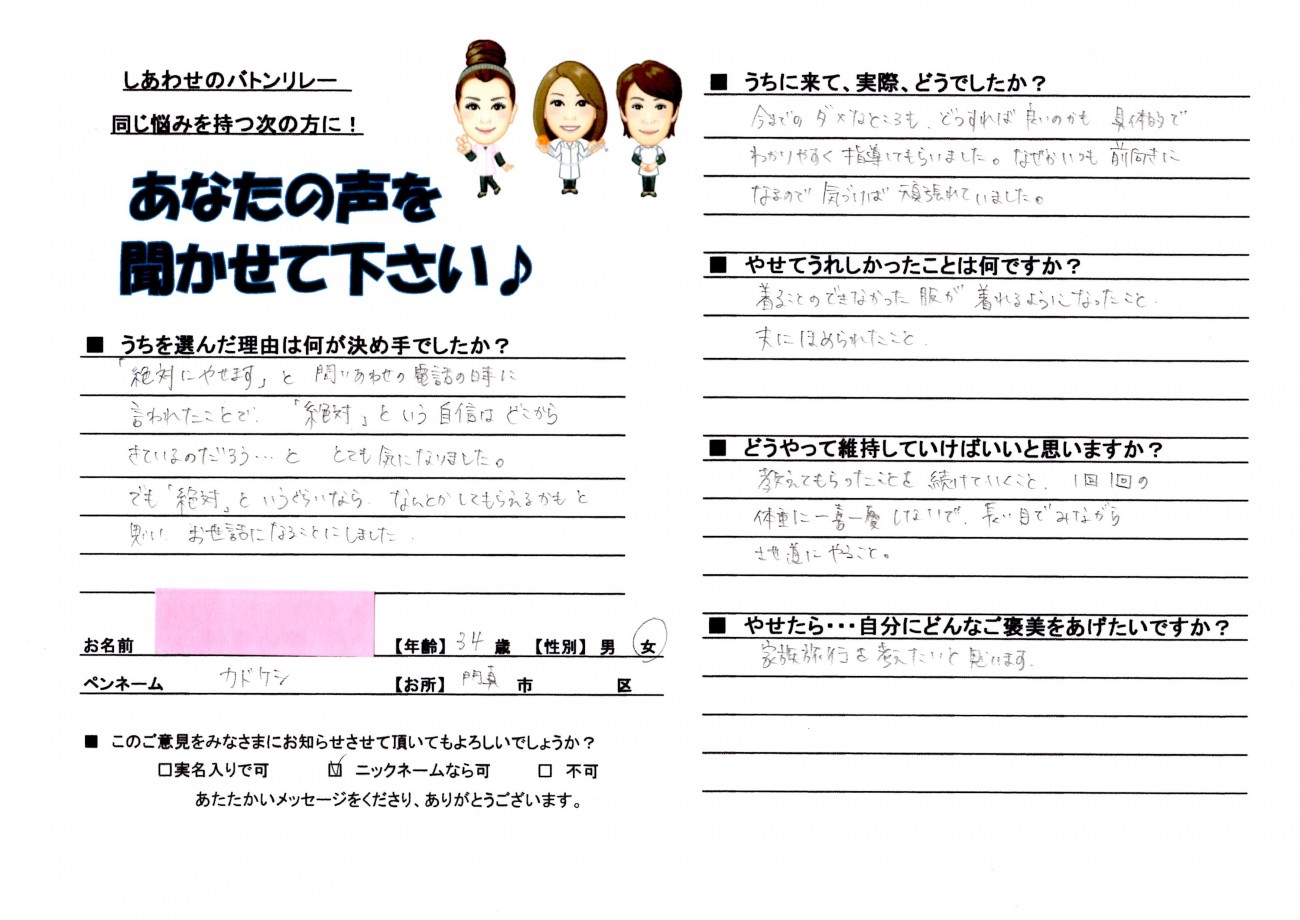 しあわせのバトンリレー
同じ悩みを持つ次の方に!
あなたの声を
聞かせて下さい♪
■ うちを選んだ理由は何が決め手でしたか?
「絶対にやせます」と 問いあわせの電話の時に
言われたことで、「絶対」という自信はどこから
きているのだろう…と とても気になりました。
でも「絶対」というぐらいなら、なんとかしてもらえるかもと
思い お世話になることにしました.
お名前 【年齢】 34 歳 【性別】 男 女
ペンネーム カドケシ 【お所】 門真 市 区
■ このご意見をみなさまにお知らせさせて頂いてもよろしいでしょうか?
□実名入りで可 ☑ ニックネームなら可 □ 不可
あたたかいメッセージをくださり、ありがとうございます。
■ うちに来て、実際、どうでしたか?
今までのダメなところも、どうすれば良いのかも 具体的で
わかりやすく指導してもらいました。なぜかいつも前向きに
なるので 気づけば 頑張れていました。
■ やせてうれしかったことは何ですか?
着ることのできなかった服が 着れるようになったこと.
夫にほめられたこと.
■ どうやって維持していけばいいと思いますか?
教えてもらったことを続けていくこと. 1回1回の
体重に一喜一憂しないで、長い目でみながら
させ道にやること。
■ やせたら・・・自分にどんなご褒美をあげたいですか?
家族旅行を考えたいと思います.